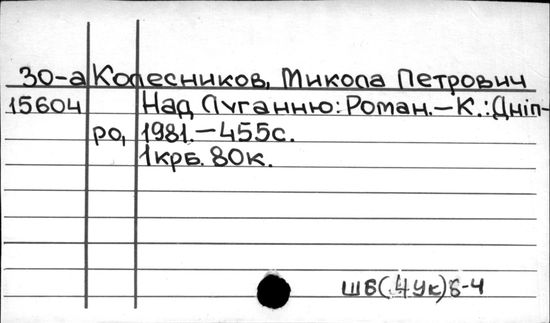 30-а Колесников, Микола Петрович
15604 Над Луганню: Роман. – К.: Дніп-
ро, 1981. – 455с.
1крб. 80к.
ШБ(.4Ук)6-4